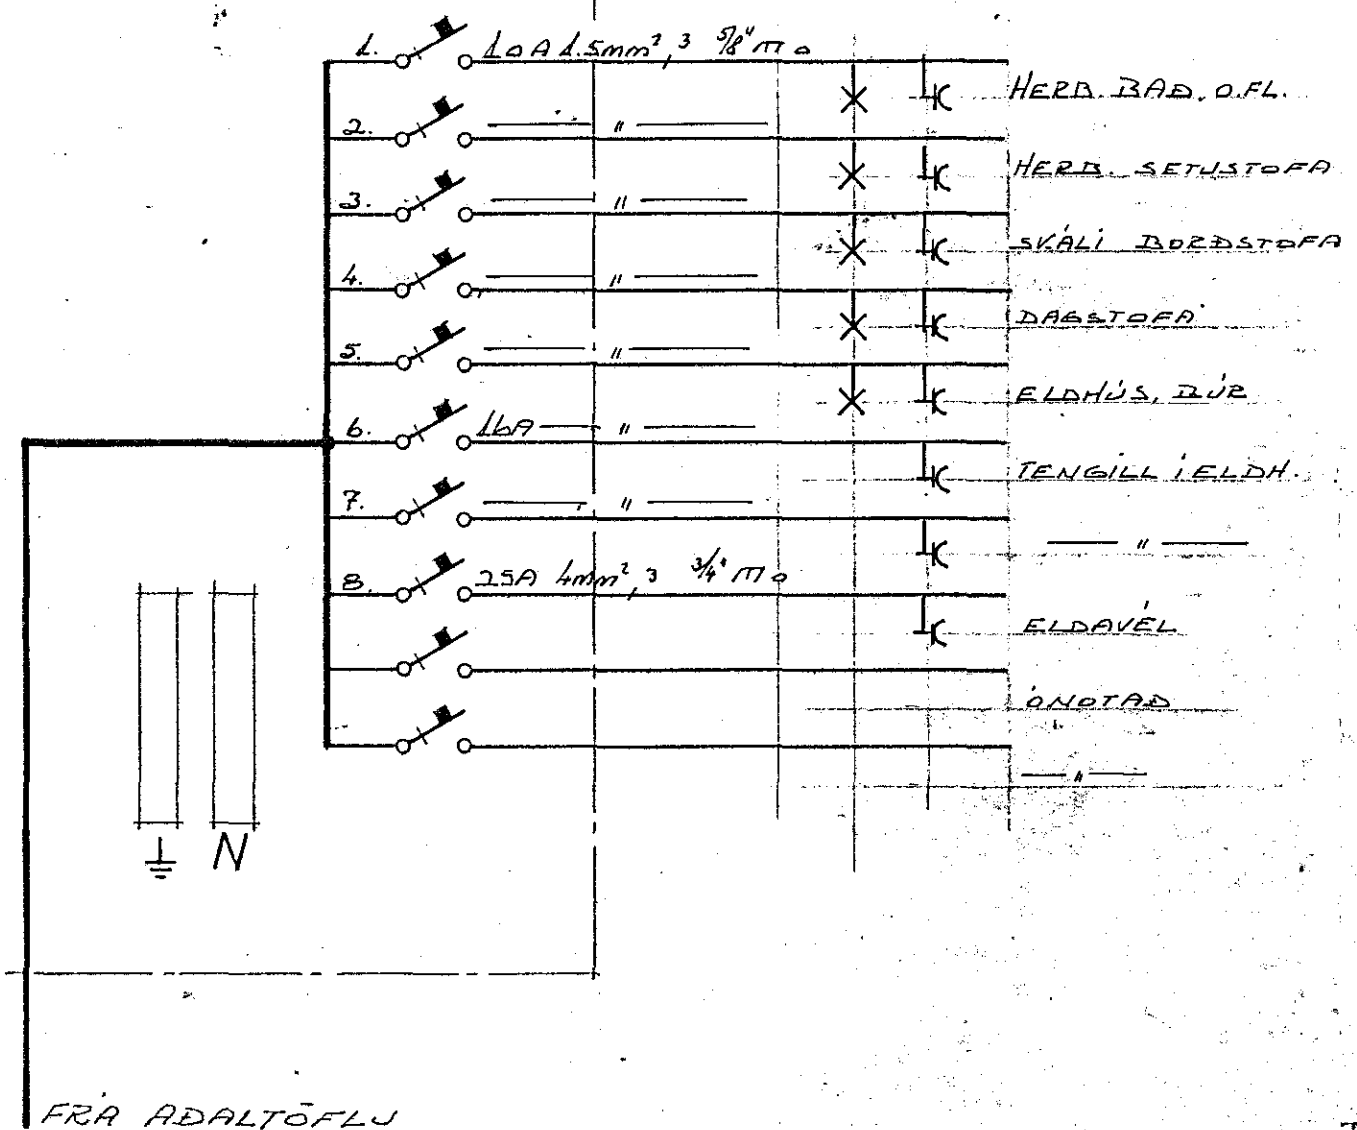 1. 10A 1.5mm², 3 5/8" HERB. BAÐ. O.FL.
2. " HERB. SETUSTOFA
3. " SKÁLI BORÐSTOFA
4. " DAGSTOFA
5. " ELDHÚS, BÚR
6. 16A " TENGILL Í ELDH.
7. " "
8. 25A 4mm², 3 3/4" ELDAVÉL
ÓNOTAÐ
"
N
FRÁ AÐALTÖFLU